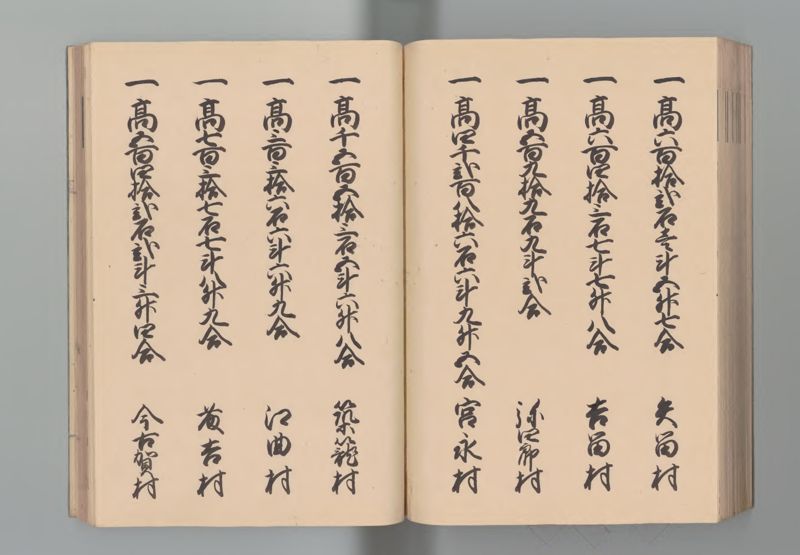 一高六百拾弐石壱斗五升七合 矢留村
一高六百四拾三石七斗七升八合 吉留村
一高五百九拾九石九斗弐合 弥四郎村
一高四千弐百八拾六石六斗九升五合 宮永村
一高千五百五拾三石五斗六升八合 築籠村
一高三百三拾六石六斗六升九合 江曲村
一高七百三拾七石七斗八升九合 茂吉村
一高五百四拾弐石弐斗三升四合 今古賀村